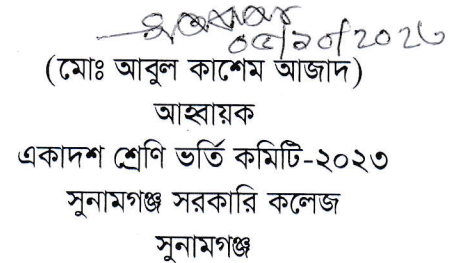 ০৫/১০/2023
(মোঃ আবুল কাশেম আজাদ)
আহ্বায়ক
একাদশ শ্রেণি ভর্তি কমিটি-২০২৩
সুনামগঞ্জ সরকারি কলেজ
সুনামগঞ্জ